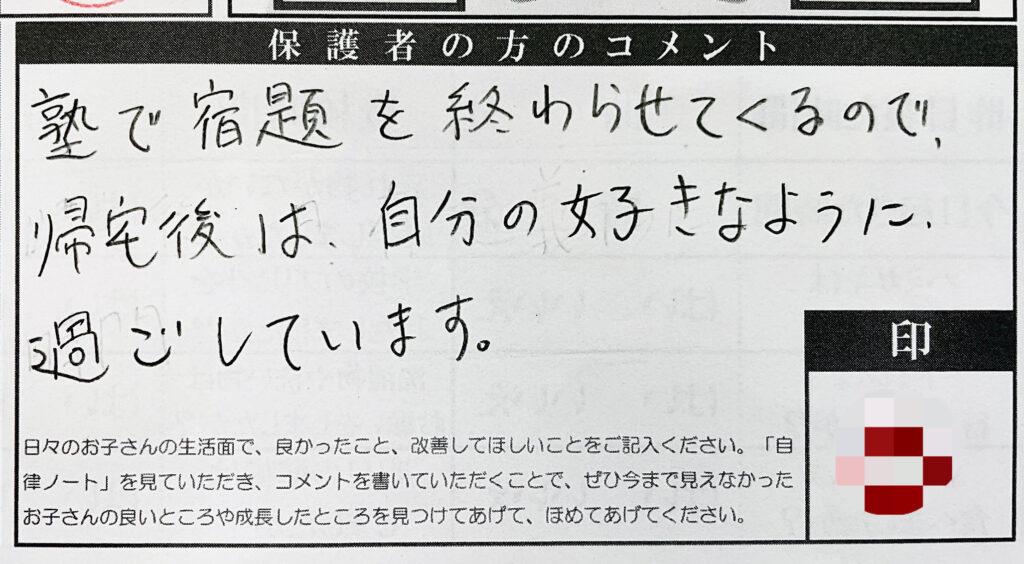 保護者の方のコメント
塾で宿題を終わらせてくるので、
帰宅後は、自分の好きなように、
過ごしています。
印
日々のお子さんの生活面で、良かったこと、改善してほしいことをご記入ください。「自
律ノート」を見ていただき、コメントを書いていただくことで、ぜひ今まで見えなかった
お子さんの良いところや成長したところを見つけてあげて、ほめてあげてください。